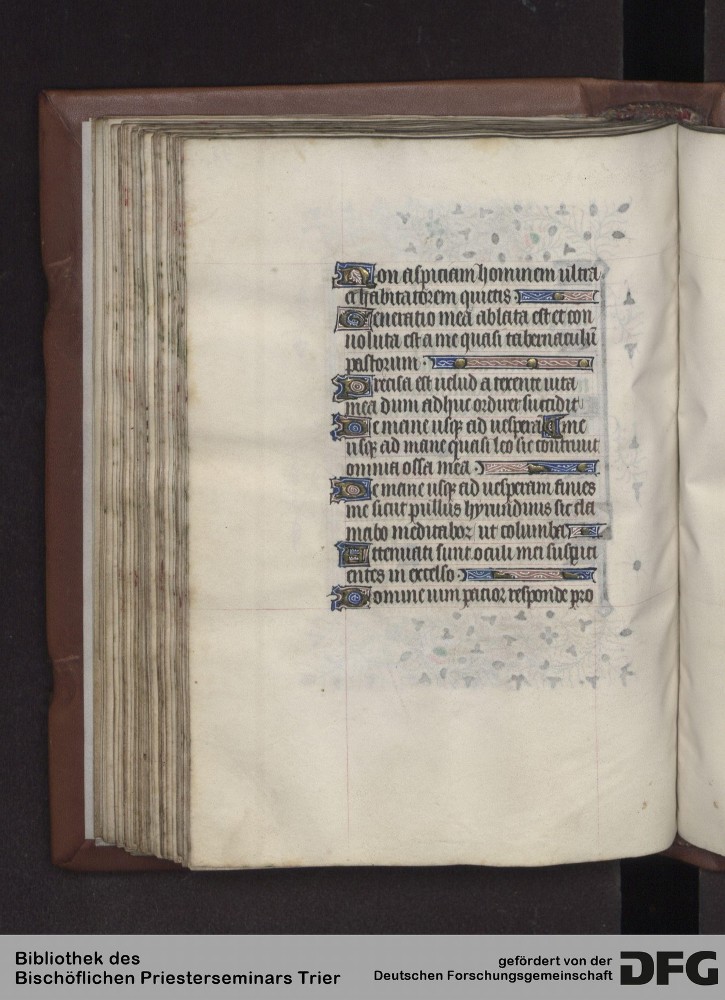 Non aspiciam hominem ultra
et habitatorem quietis
Generatio mea ablata est et con
uoluta est a me quasi tabernaculū
pastorum
Precisa est uelud a texente uita
mea dum adhuc ordirer succidit
De mane usqꝫ ad uespera me
usqꝫ ad mane quasi leo sic contriuit
omnia ossa mea
De mane usqꝫ ad uesperam finies
me sicut pullus hyrundinis sic cla
mabo meditabor ut columba
Attenuati sunt oculi mei suspici
entes in excelso
Domine uim patior responde pro
Bibliothek des
Bischöflichen Priesterseminars Trier
gefördert von der
Deutschen Forschungsgemeinschaft
DFG